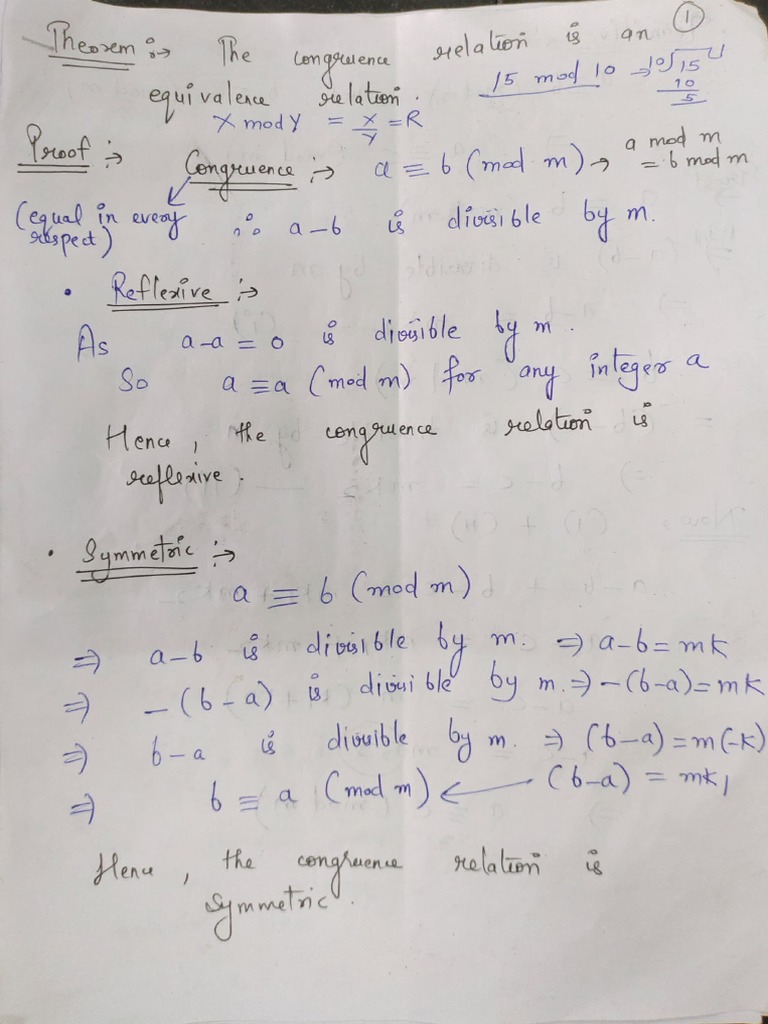 ①
Theorem :→ The congruence relation is an
equivalence relation.
15 mod 10 ⇒ 10√15
10
5
X mod Y = X/Y = R
Proof :→ Congruence :→ a ≡ b (mod m) → a mod m
= b mod m
(equal in every
respect)
∴ a-b is divisible by m.
• Reflexive :→
As a-a = 0 is divisible by m.
So a ≡ a (mod m) for any integer a
Hence, the congruence relation is
reflexive.
• Symmetric :→
a ≡ b (mod m)
⇒ a-b is divisible by m. ⇒ a-b = mk
⇒ -(b-a) is divisible by m. ⇒ -(b-a) = mk
⇒ b-a is divisible by m. ⇒ (b-a) = m(-k)
⇒ b ≡ a (mod m) ← (b-a) = mk₁
Hence, the congruence relation is
symmetric.